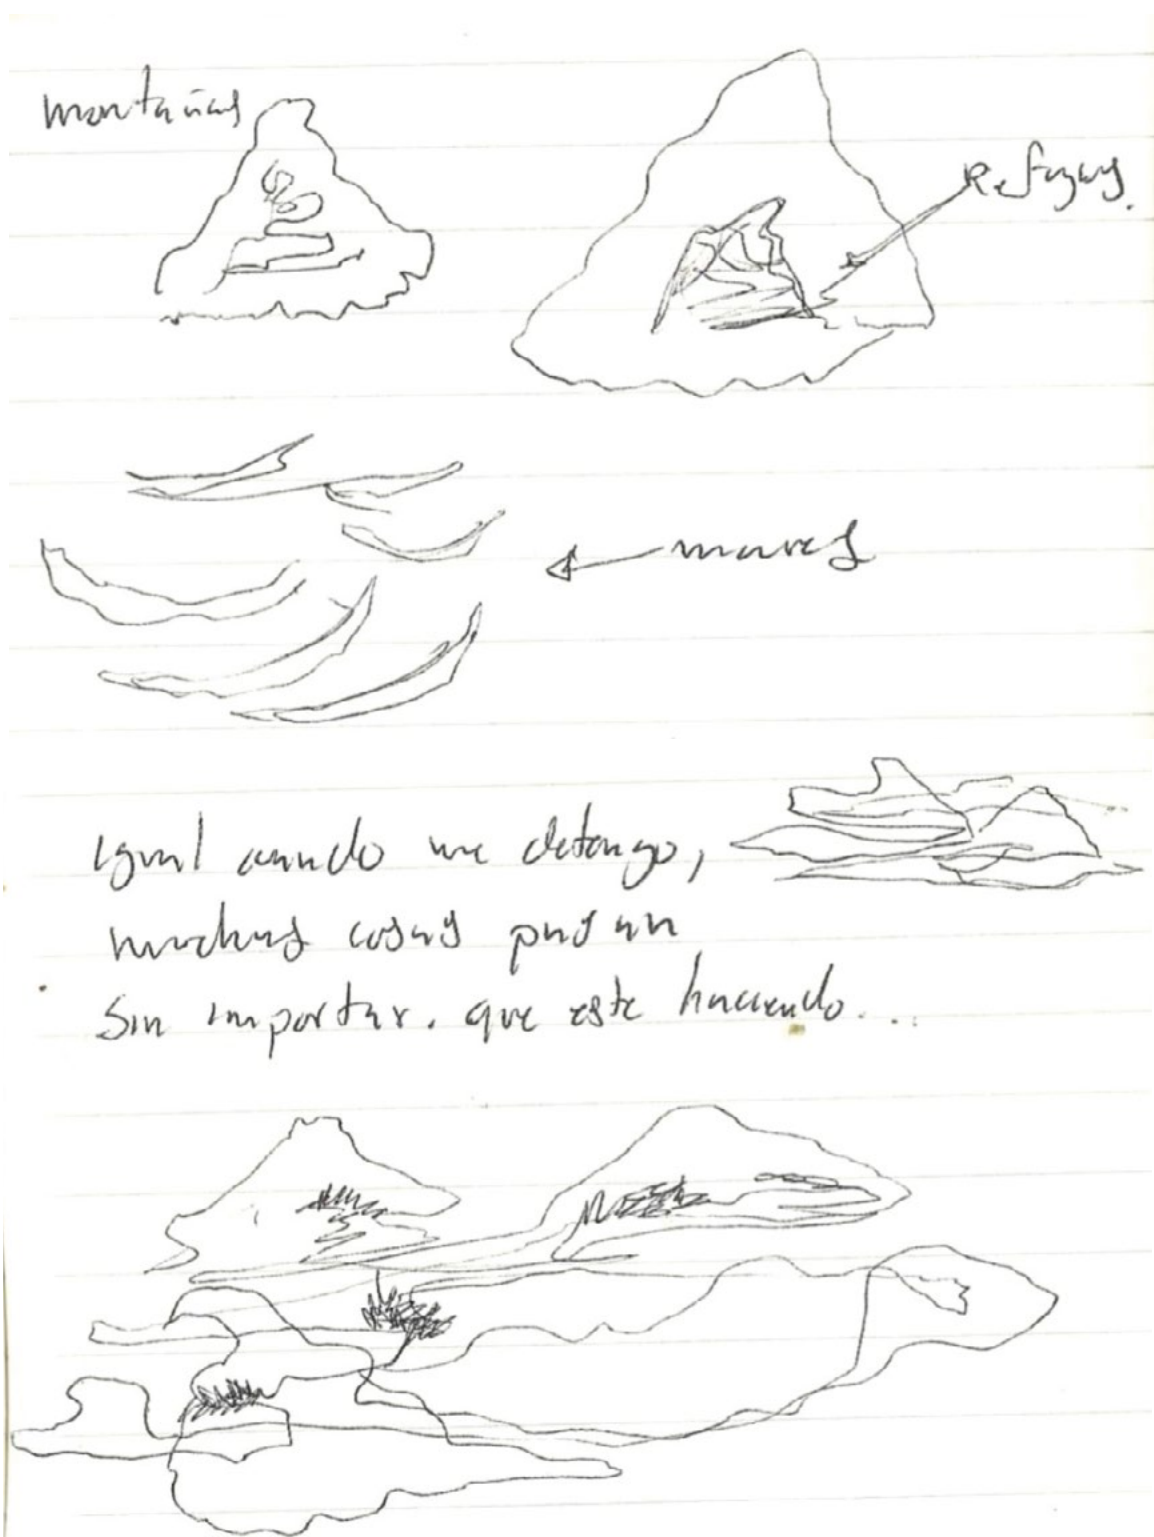 montañas
Refugios.
mares
igual cuando me detengo,
muchas cosas pasan
sin importar. que este haciendo...